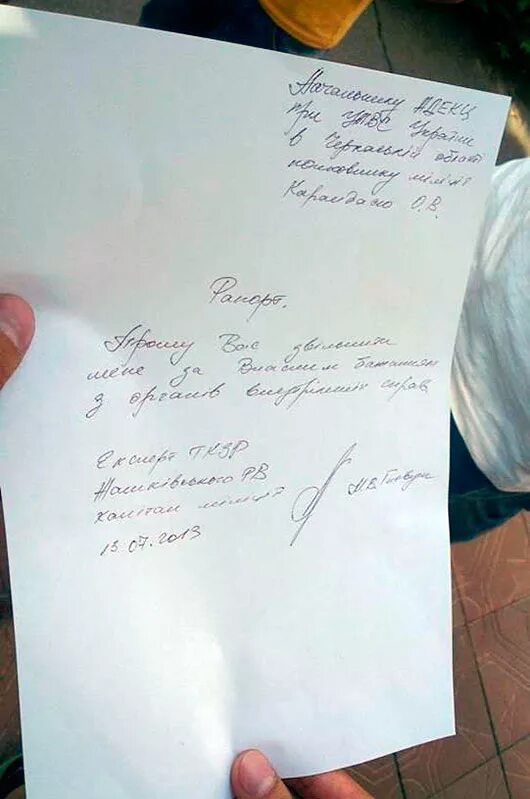 Начальнику НДЕКЦ
при УМВС України
в Черкаській області
полковнику міліції
Карандасю О.В.
Рапорт.
Прошу Вас звільнити
мене за власним бажанням
з органів внутрішніх справ
Експерт ТКЗР
Жашківського РВ
капітан міліції
М.В.
13.07.2013